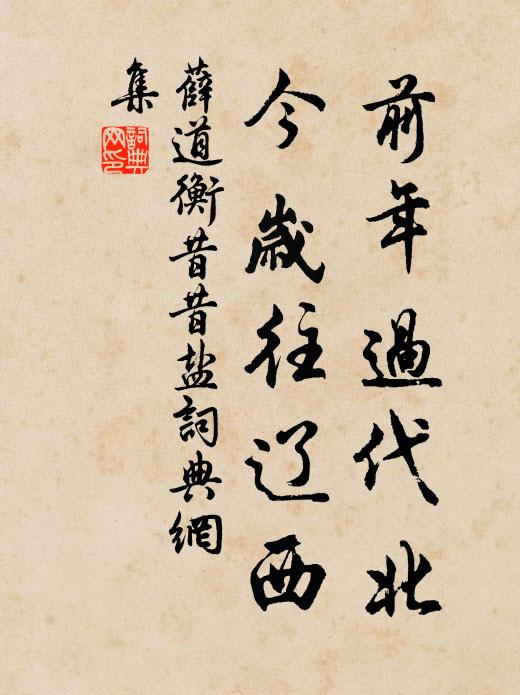 前年過代北
今歲往辽西
薛道衡昔昔盐詞典網
集
詞典
网印